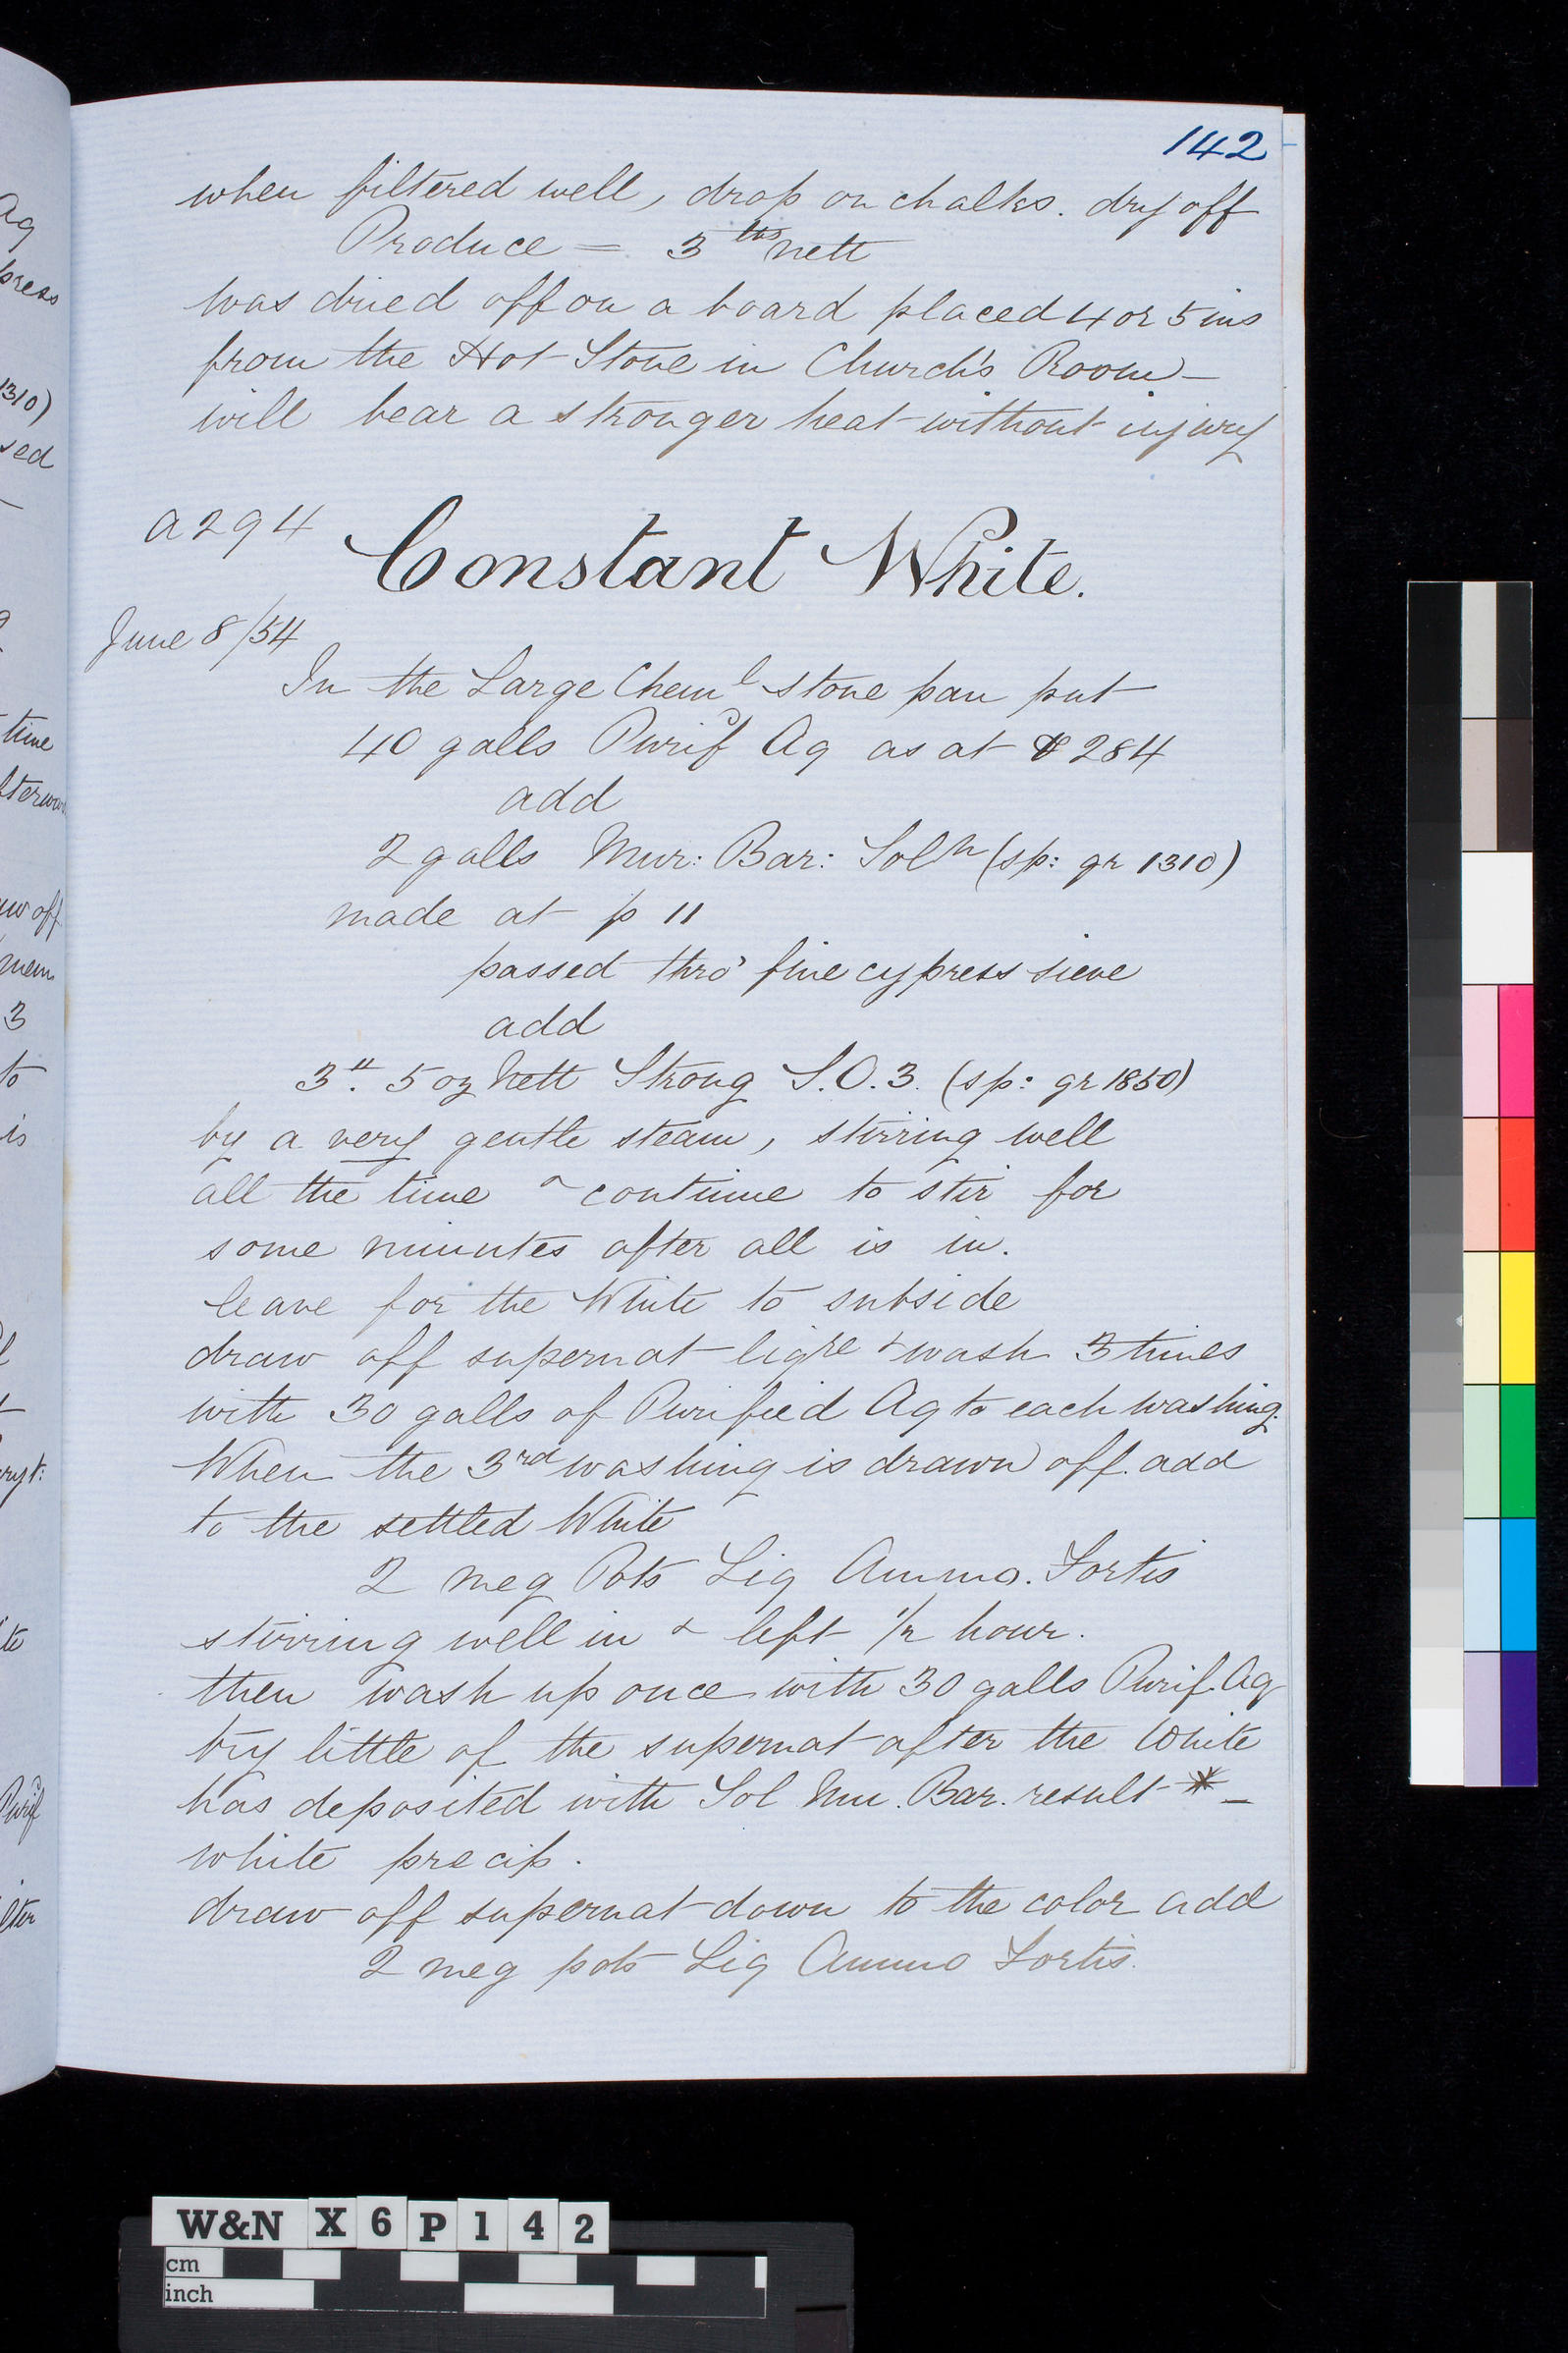 142
when filtered well, drop on chalks. dry off
Produce = 3 lbs nett
was dried off on a board placed 4 or 5 ins
from the Hot Stove in Church's Room -
will bear a stronger heat without injury
a294 Constant White.
June 8/54
In the Large Cheml stone pan put
40 galls Purifd Aq as at 284
add
2 galls Mur: Bar: Soln (sp: gr 1310)
made at p 11
passed thro' fine cypress sieve
add
3". 5 oz Nett Strong S.O.3. (sp: gr 1850)
by a very gentle steam, stirring well
all the time & continue to stir for
some minutes after all is in.
leave for the White to subside
draw off supernat liqre & wash 3 times
with 30 galls of Purified Aq to each washing.
When the 3rd washing is drawn off. add
to the settled White
2 meg Pots Liq Ammo. Fortis
stirring well in & left 1/2 hour.
then wash up once with 30 galls Purif. Aq
try little of the supernat after the White
has deposited with Sol Mu. Bar. result * -
white precip.
draw off supernat down to the color add
2 meg pots Liq Ammo Fortis.
Aq
press
1310)
sed
time
aw off
3
to
is
Purifd
W&N X6P142
cm
inch